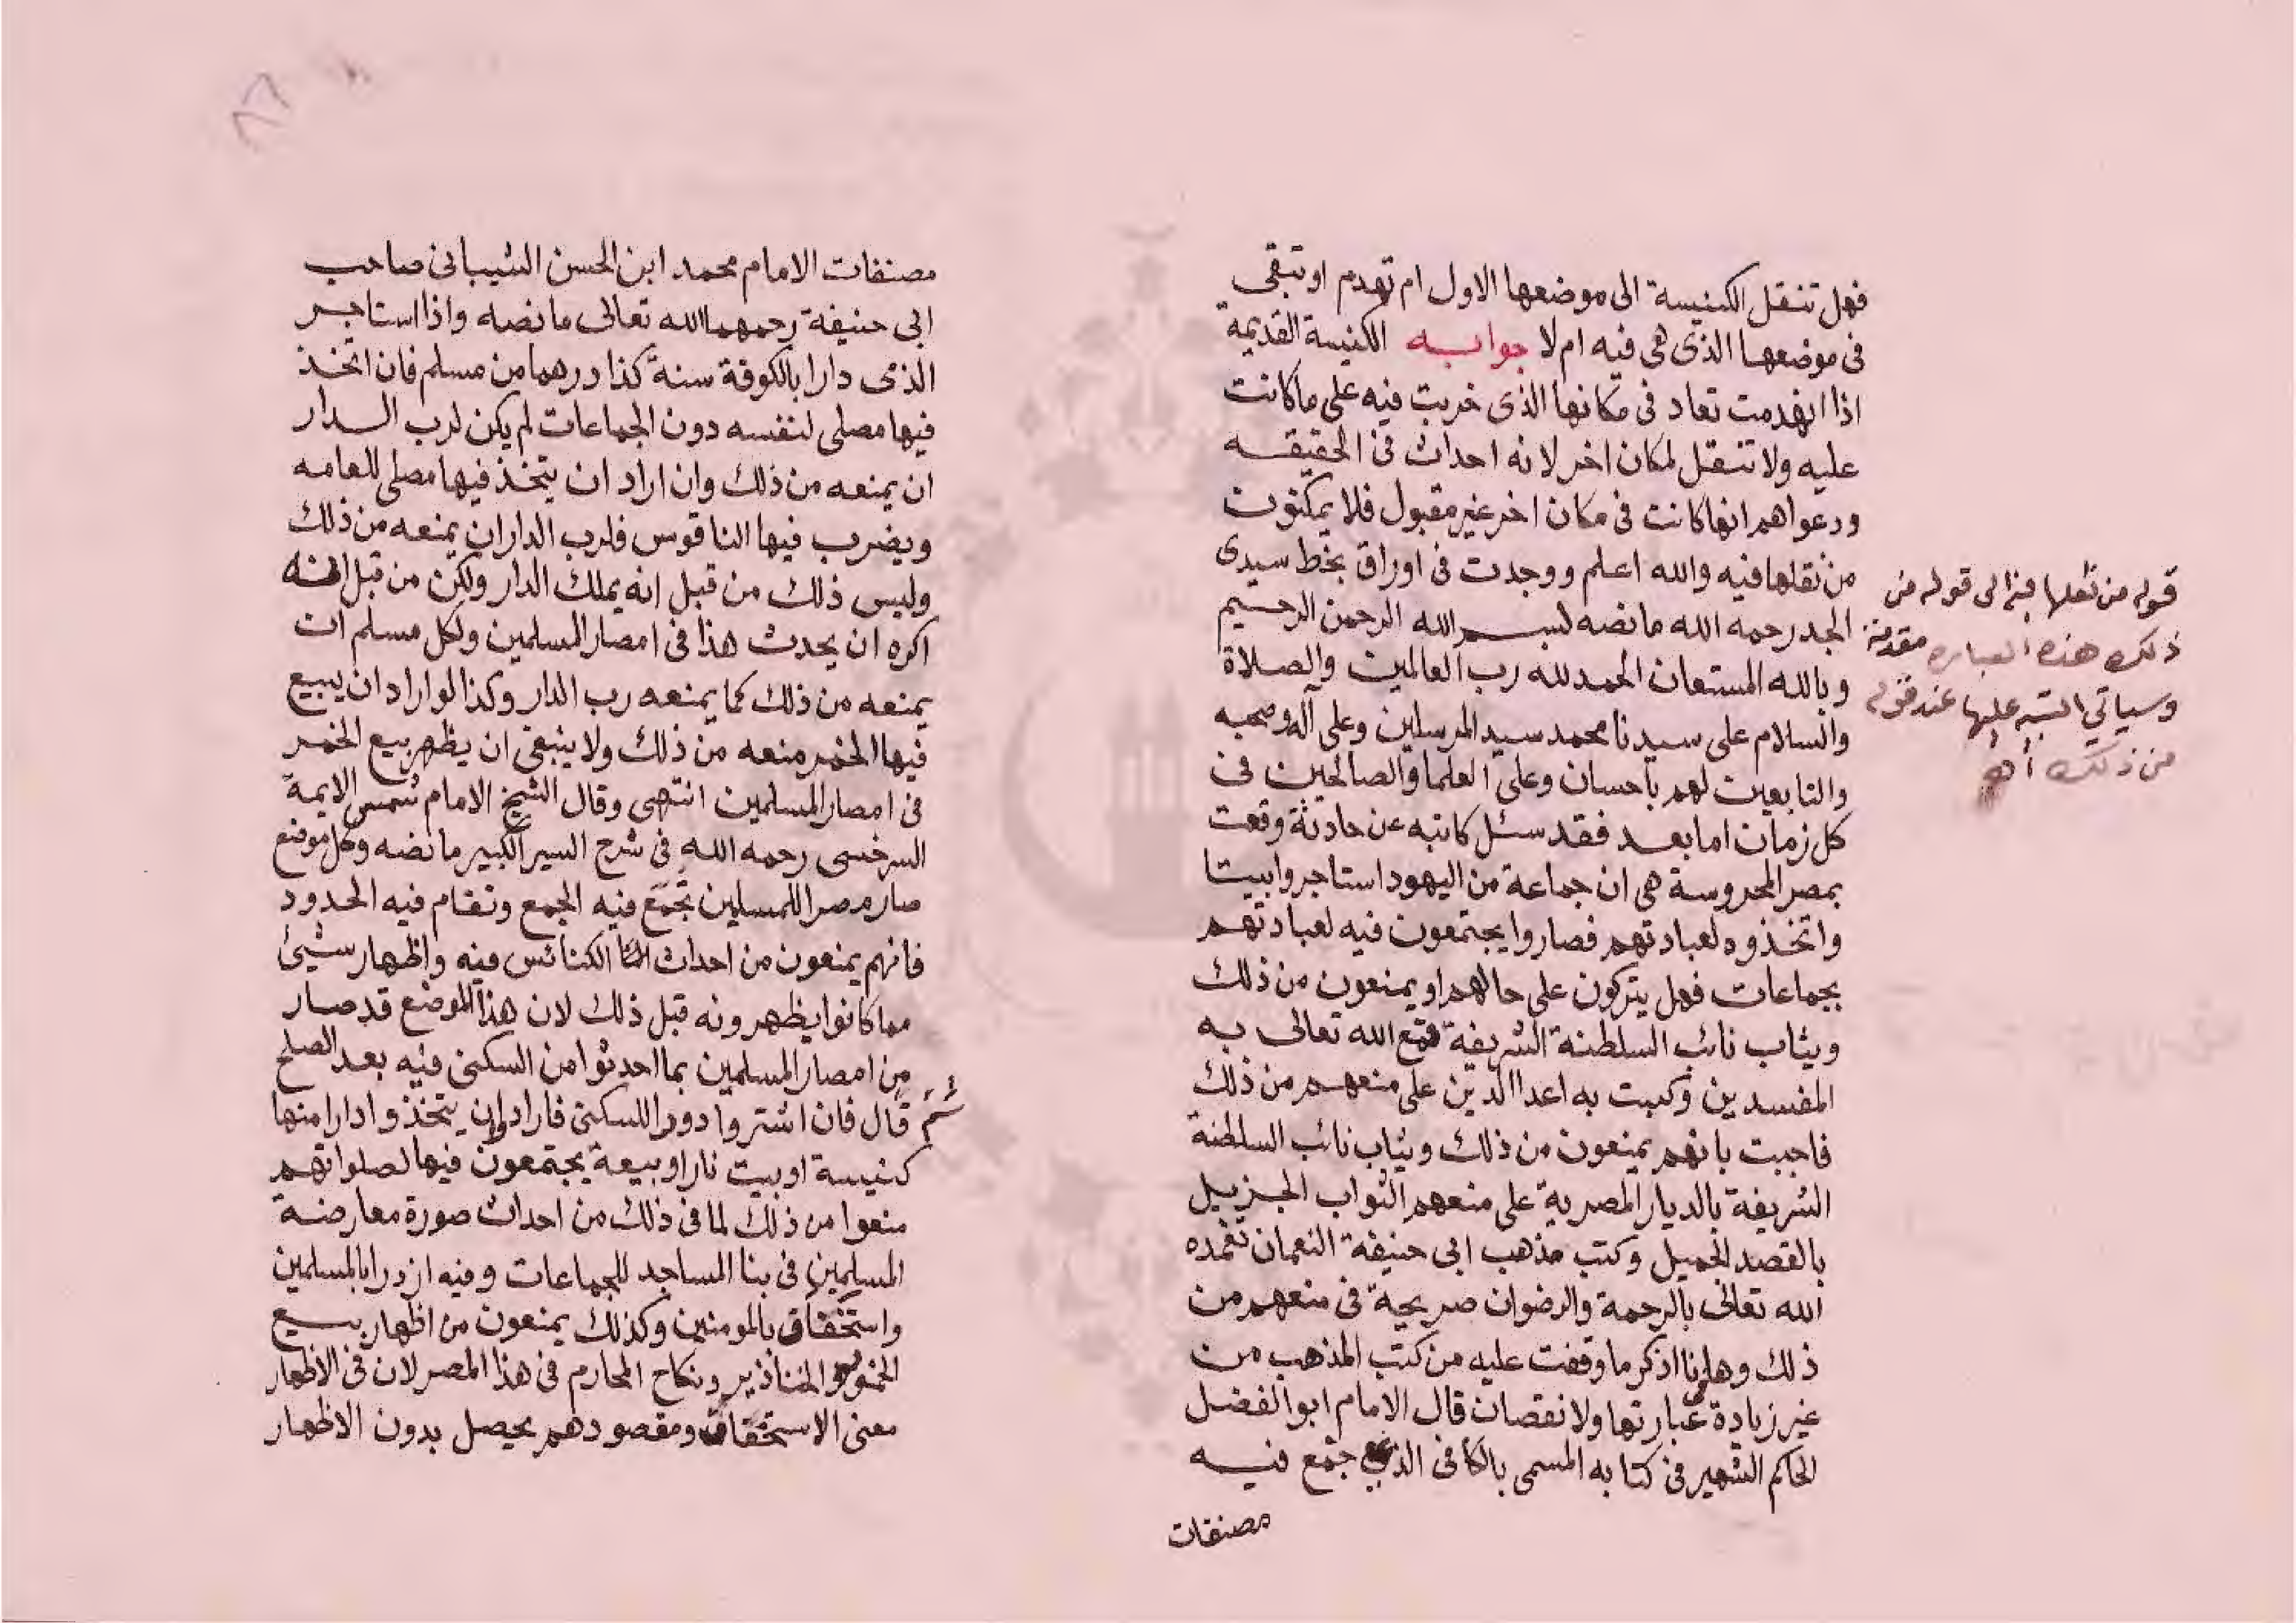 فهل تنقل الكنيسة الى موضعها الاول ام تهدم او تبقى
فى موضعها الذى هى فيه ام لا جوابه الكنيسة القديمة
اذا انهدمت تعاد فى مكانها الذى خربت فيه على ما كانت
عليه ولا تنقل لمكان اخر لانه احداث فى الحقيقه
ودعواهم انها كانت فى مكان اخر غير مقبول فلا يمكنون
من نقلها فيه والله اعلم ووجدت فى اوراق بخط سيدى
الجد رحمه الله ما نصه بسم الله الرحمن الرحيم
وبالله المستعان الحمد لله رب العالمين والصلاة
والسلام على سيدنا محمد سيد المرسلين وعلى آله وصحبه
والتابعين لهم باحسان وعلى العلما والصالحين فى
كل زمان اما بعد فقد سئل كاتبه عن حادثة وقعت
بمصر المحروسة هى ان جماعة من اليهود استاجروا بيتا
واتخذوه لعبادتهم فصاروا يجتمعون فيه لعبادتهم
بجماعات فهل يتركون على حالهم او يمنعون من ذلك
ويثاب نائب السلطنة الشريفة قمع الله تعالى به
المفسدين وكبت به اعدا الدين على منعهم من ذلك
فاجبت بانهم يمنعون من ذلك ويثاب نائب السلطنة
الشريفة بالديار المصرية على منعهم الثواب الجزيل
بالقصد الجميل وكتب مذهب ابى حنيفة النعمان تغمده
الله تعالى بالرحمة والرضوان صريحة فى منعهم من
ذلك وها انا اذكر ما وقفت عليه من كتب المذهب من
غير زيادة عبارتها ولا نقصان قال الامام ابو الفضل
الحاكم الشهير فى كتابه المسمى بالكافى الذى جمع فيه
مصنفات
قوله من نقلها فيه الى قوله من
ذلك هذه العباره مقدمة
وسياتي التنبيه عليها عند قوله
من ذلك أهـ
٨٦
مصنفات الامام محمد ابن الحسن الشيبانى صاحب
ابى حنيفة رحمهما الله تعالى ما نصه واذا استاجر
الذى دارا بالكوفة سنة كذا درهما من مسلم فان اتخذ
فيها مصلى لنفسه دون الجماعات لم يكن لرب الدار
ان يمنعه من ذلك وان اراد ان يتخذ فيها مصلى للعامه
ويضرب فيها الناقوس فلرب الدار ان يمنعه من ذلك
وليس ذلك من قبل انه يملك الدار ولكن من قبل انه
اكره ان يحدث هذا فى امصار المسلمين ولكل مسلم ان
يمنعه من ذلك كما يمنعه رب الدار وكذا لو اراد ان يبيع
فيها الخمر منعه من ذلك ولا ينبغى ان يظهر بيع الخمر
فى امصار المسلمين انتهى وقال الشيخ الامام شمس الايمة
السرخسى رحمه الله فى شرح السير الكبير ما نصه وكل موضع
صار مصرا للمسلمين تجمع فيه الجمع وتقام فيه الحدود
فانهم يمنعون من احداث الكنائس فيه واظهار شيئ
مما كانوا يظهرونه قبل ذلك لان هذا الموضع قد صار
من امصار المسلمين بما احدثوا من السكنى فيه بعد الصلح
ثم قال فان اشتروا دورا للسكنى فارادوا ان يتخذوا دارا منها
كنيسة او بيت نار او بيعة يجتمعون فيها لصلواتهم
منعوا من ذلك لما فى ذلك من احداث صورة معارضة
المسلمين فى بنا المساجد للجماعات وفيه ازدرا بالمسلمين
واستخفاف بالمومنين وكذلك يمنعون من اظهار بيع
الخمور والخنازير ونكاح المحارم فى هذا المصر لان فى الاظهار
معنى الاستخفاف ومقصودهم يحصل بدون الاظهار